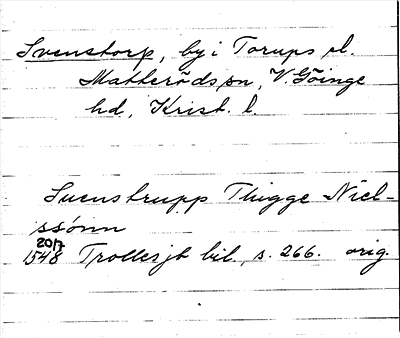 Svenstorp, by i Torups el.
Matterödspn, V. Göinge
hd, Krist. l.
Suenstrupp Thigge Niel-
ssönn
20/7
1548 Trollesjb bil., s. 266. orig.